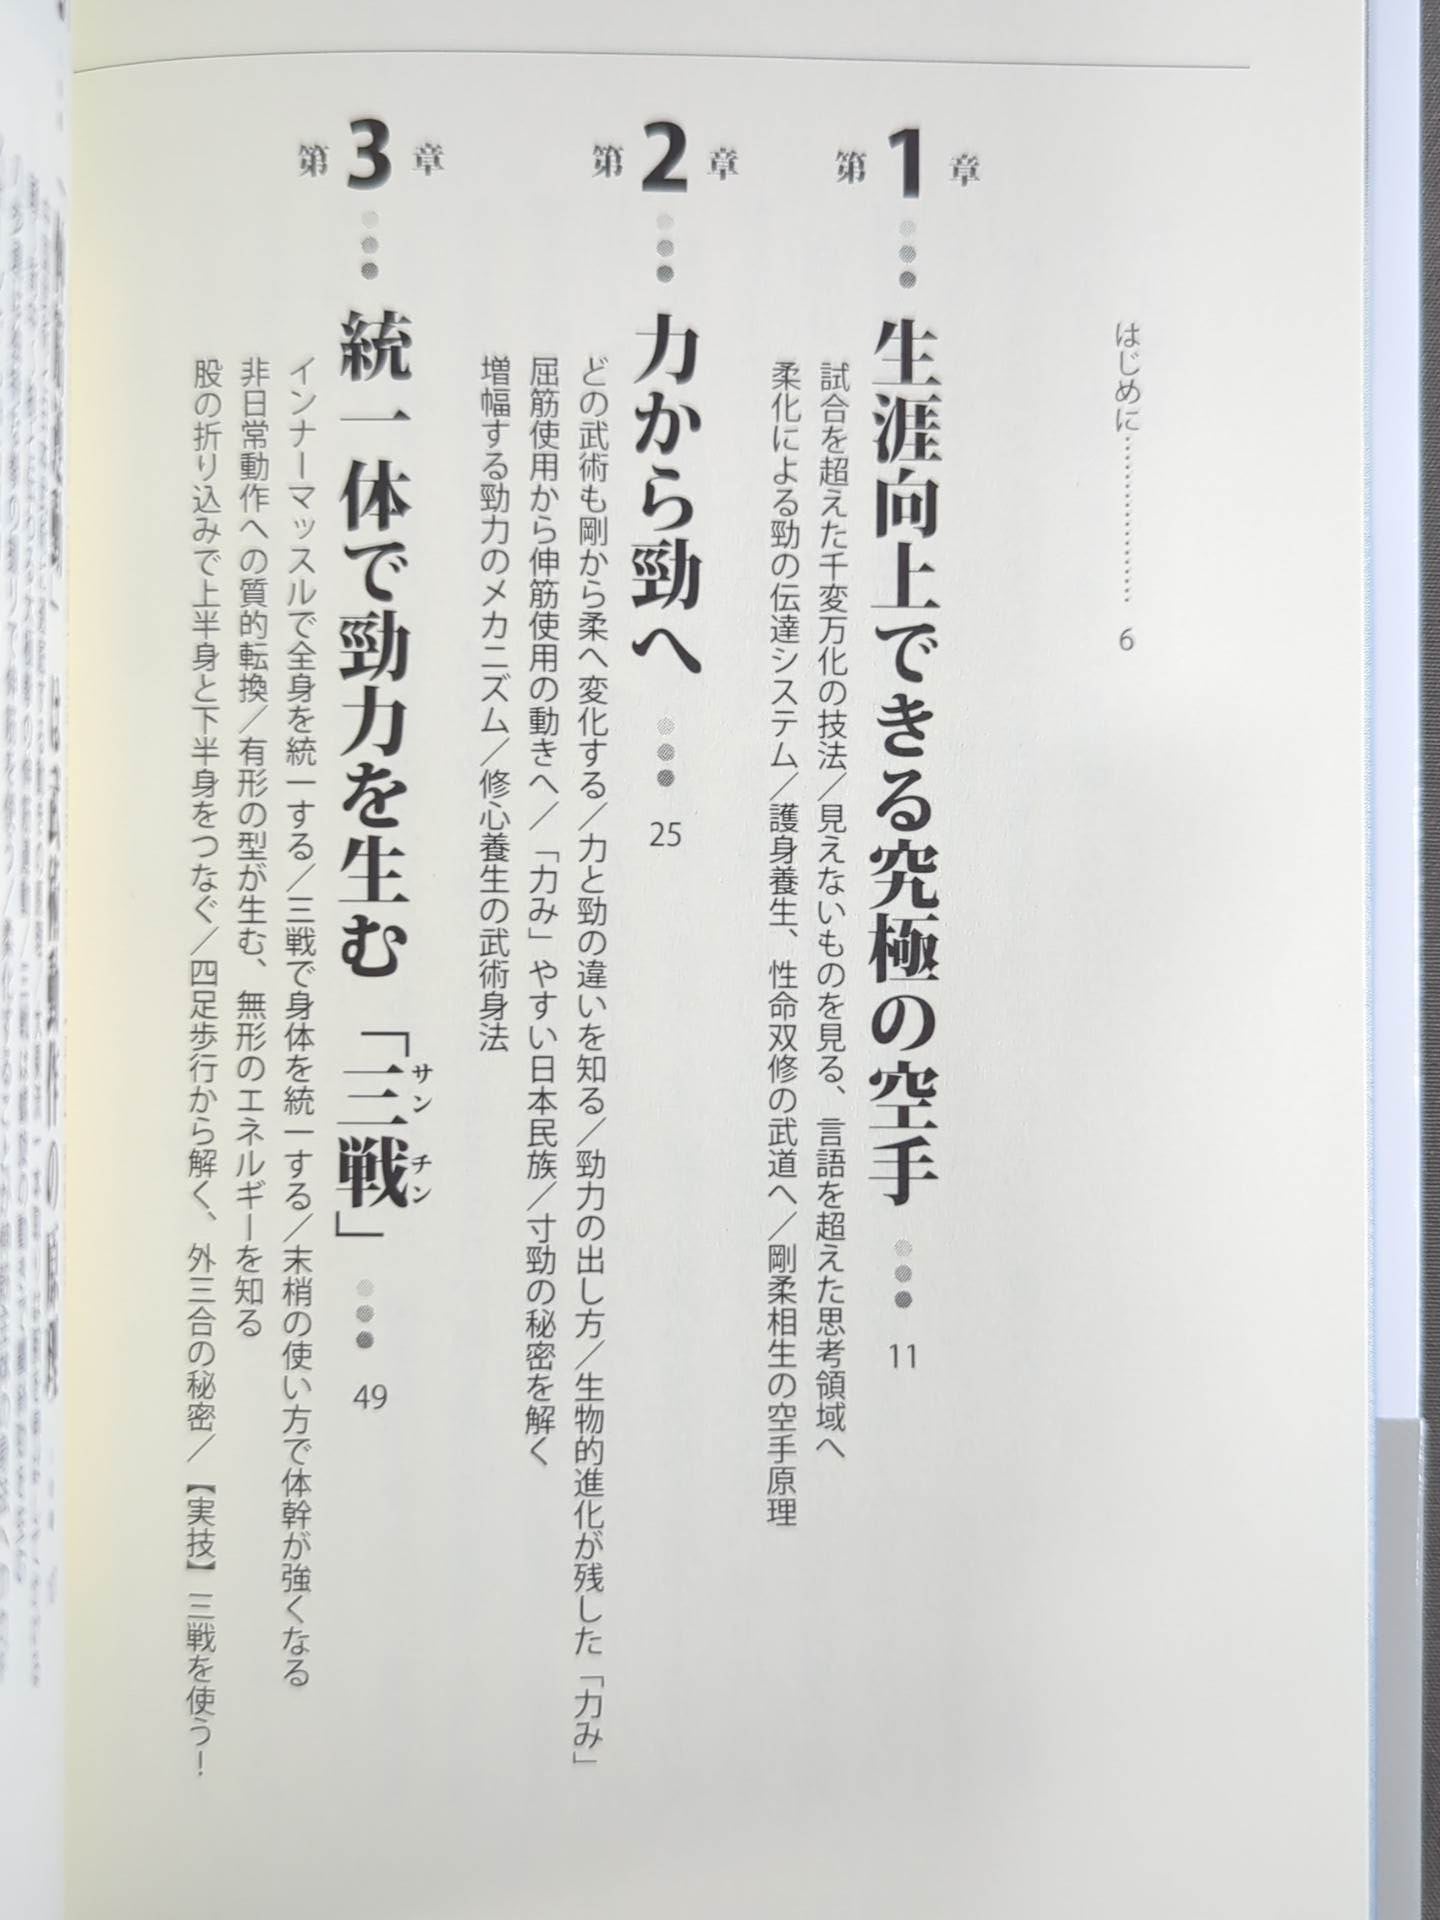 はじめに………………… 6
第1章 生涯向上できる究極の空手 11
試合を超えた千変万化の技法／見えないものを見る、言語を超えた思考領域へ
柔化による勁の伝達システム／護身養生、性命双修の武道へ／剛柔相生の空手原理
第2章 力から勁へ 25
どの武術も剛から柔へ変化する／力と勁の違いを知る／勁力の出し方／生物的進化が残した「力み」
屈筋使用から伸筋使用の動きへ／「力み」やすい日本民族／寸勁の秘密を解く
増幅する勁力のメカニズム／修心養生の武術身法
第3章 統一体で勁力を生む「三戦」 49
サンチン
インナーマッスルで全身を統一する／三戦で身体を統一する／末梢の使い方で体幹が強くなる
非日常動作への質的転換／有形の型が生む、無形のエネルギーを知る
股の折り込みで上半身と下半身をつなぐ／四足歩行から解く、外三合の秘密／【実技】三戦を使う！